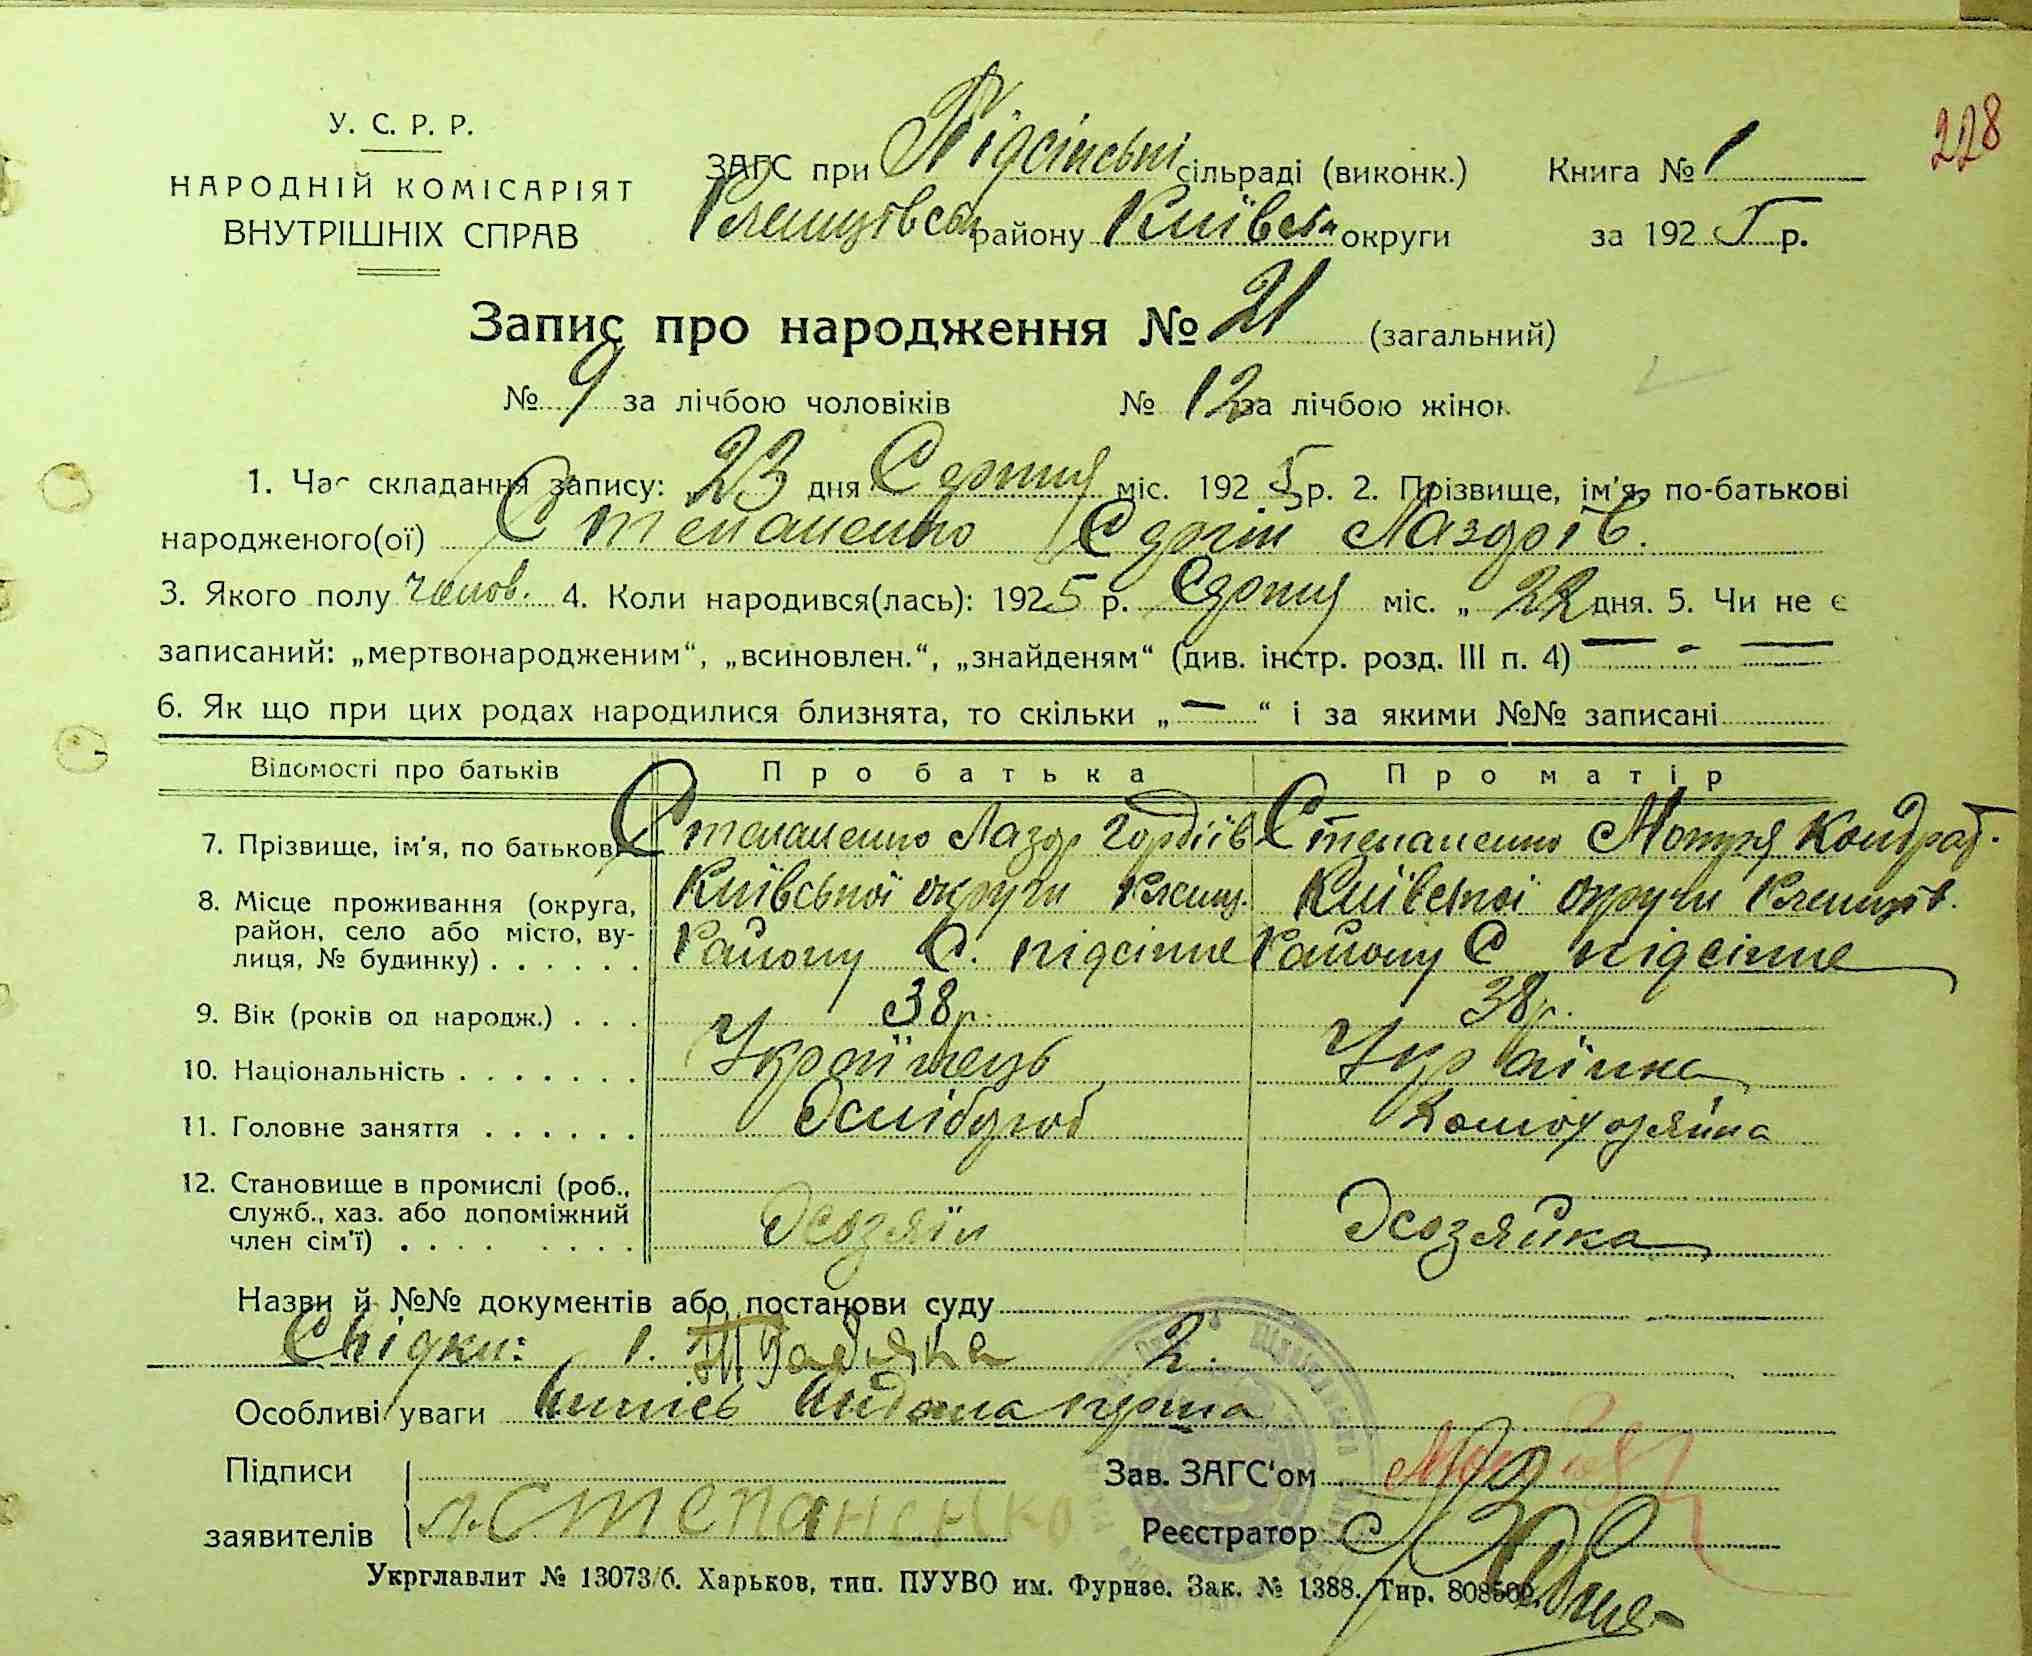 228
У. С. Р. Р.
НАРОДНІЙ КОМІСАРІЯТ
ВНУТРІШНІХ СПРАВ
ЗАГС при Підсінські сільраді (виконк.) Книга № 1
району Київськ округи за 1925 р.
Запис про народження № 21 (загальний)
№ 9 за лічбою чоловіків № 12 за лічбою жінок
1. Час складання запису: 23 дня Серпня міс. 1925 р. 2. Прізвище, ім'я, по-батькові
народженого(ої) Степаненко Сдргій Лаздрів.
3. Якого полу чолов. 4. Коли народився(лась): 1925 р. Сдрпня міс. „ 22 дня. 5. Чи не є
записаний: „мертвонародженим“, „всиновлен.“, „знайденям“ (див. інстр. розд. III п. 4) — - —
6. Як що при цих родах народилися близнята, то скільки „ — “ і за якими №№ записані
Відомості про батьків Про батька Про матір
7. Прізвище, ім'я, по батькові Степаненко Лазор Гордіїв Степаненко Мотря Кондрат.
8. Місце проживання (округа, Київської округи Київської округи
район, село або місто, ву- Району С. Підсінне Району С Підсінне
лиця, № будинку)
9. Вік (років од народж.) 38 р. 38 р.
10. Національність Українець Українка
11. Головне заняття Хлібороб Домохозяйка
12. Становище в промислі (роб., Хозяїн Хозяйка
служб., хаз. або допоміжний
член сім'ї)
Назви й №№ документів або постанови суду
Свідки: 1. 2.
Особливі уваги
Підписи Зав. ЗАГС'ом
заявителів Л. Степаненко Реєстратор
Укрглавлит № 13073/б. Харьков, тип. ПУУВО им. Фрунзе. Зак. № 1388. Тир. 808500